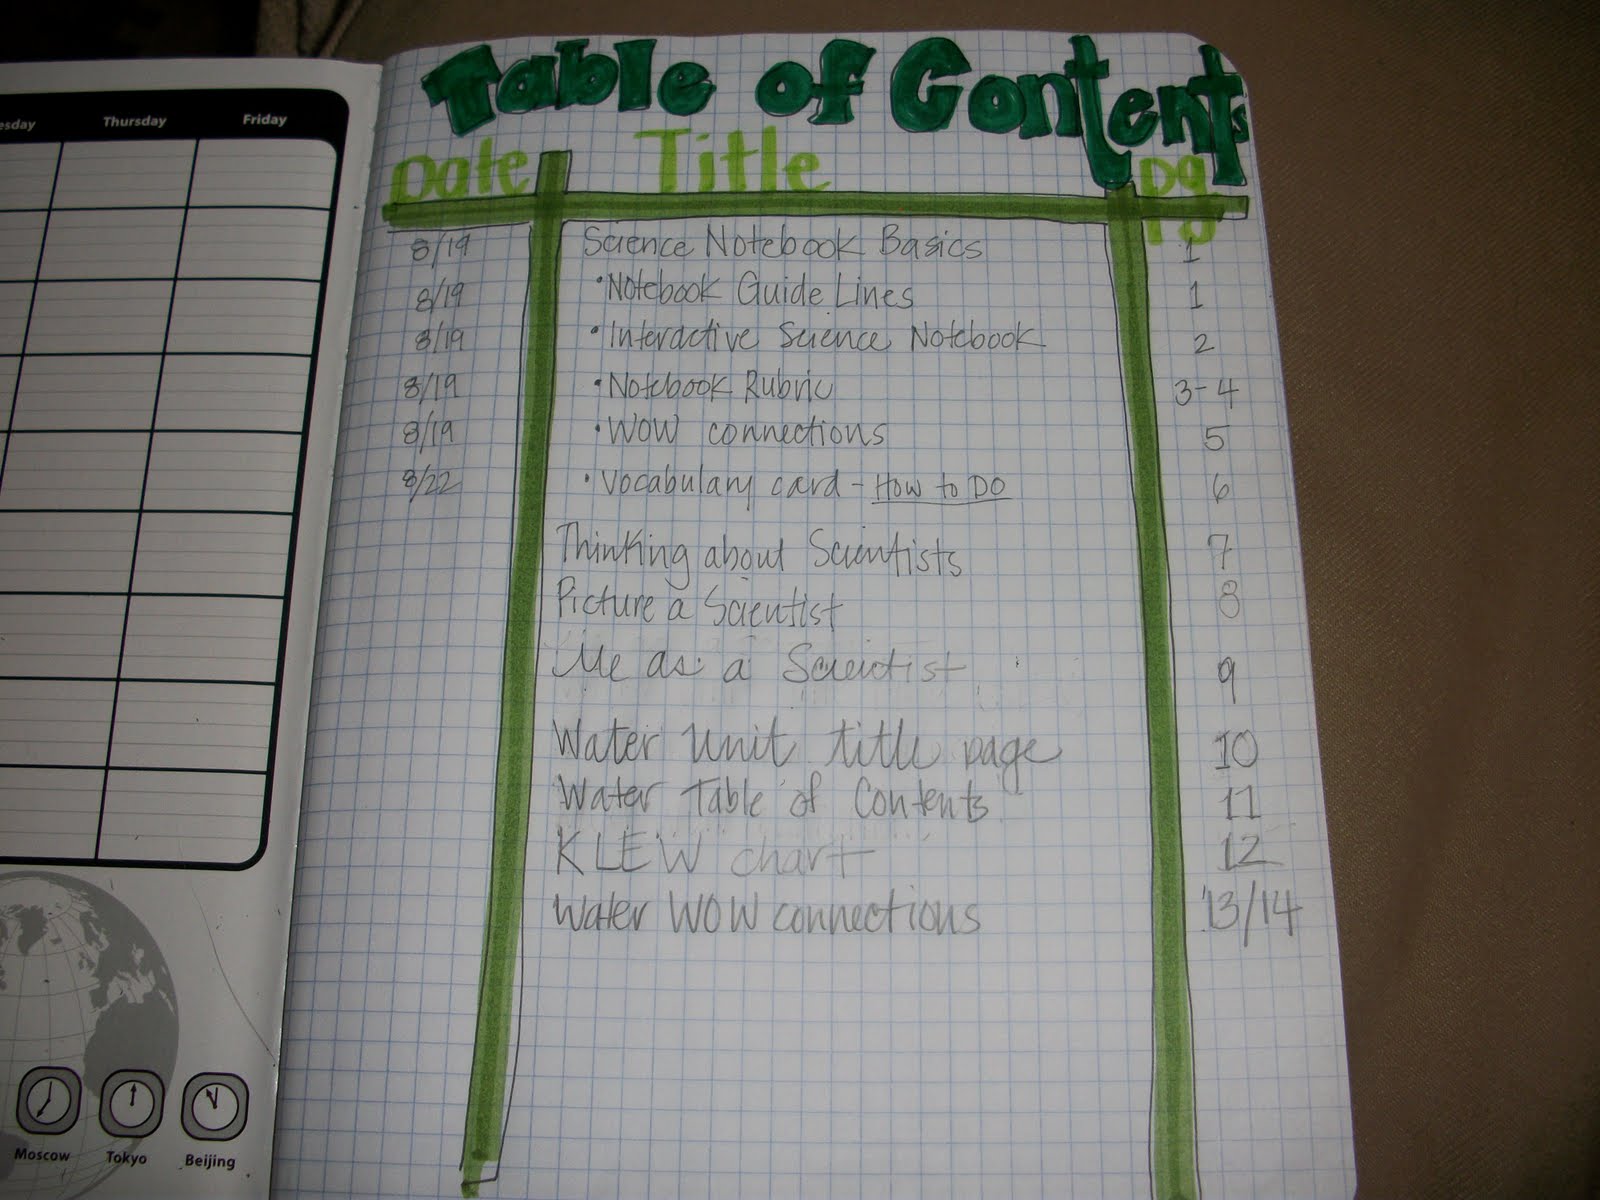 esday Thursday Friday
Moscow Tokyo Beijing
Table of Contents
Date Title pg
8/19 Science Notebook Basics 1
8/19 • Notebook Guide Lines 1
8/19 • Interactive Science Notebook 2
8/19 • Notebook Rubric 3-4
8/19 • WOW connections 5
8/22 • Vocabulary card - How to DO 6
Thinking about Scientists 7
Picture a Scientist 8
Me as a Scientist 9
Water Unit title page 10
Water Table of Contents 11
KLEW chart 12
Water WOW connections 13/14